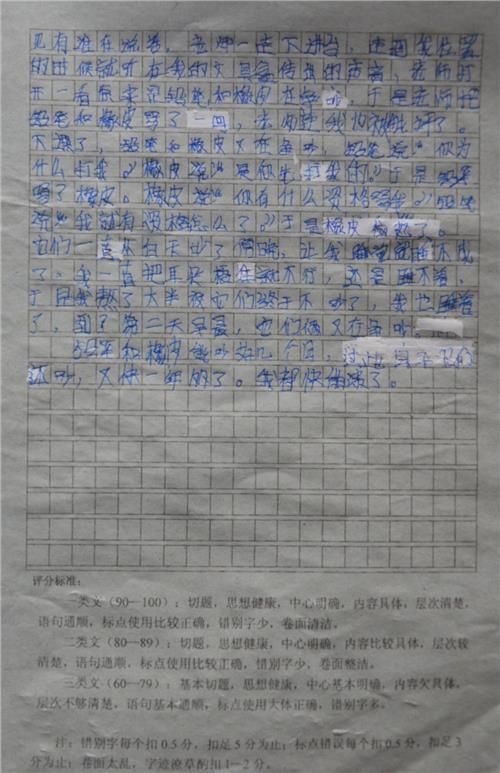 见有谁在说话，老师一走下讲台，走到我位置
的时候就听在我的文具盒传出的声音，老师打
开一看原来是铅笔和橡皮在争吵，于是老师把
铅笔和橡皮骂了一回，
下课了，铅笔和橡皮又在争吵，铅笔说“你为
什么打我？”橡皮说“是你先打我的。”于是铅笔
骂了橡皮。橡皮说“你有什么资格骂我？”铅笔
说“我就有资格怎么了？”于是橡皮
它们一直从白天吵了晚，让我睡觉都睡不成
了。我一直把耳朵 住都不行，还是睡不着，
于是我熬了大半夜它们终于不吵了，我也睡着
了，到了第二天早晨，它们俩又在争吵。
铅笔和橡皮就吵好几个月，
还吵，又快一年的了。我都快崩溃了。
评分标准：
一类文（90—100）：切题，思想健康，中心明确，内容具体，层次清楚，
语句通顺，标点使用比较正确，错别字少，卷面清洁。
二类文（80—89）：切题，思想健康，中心明确，内容比较具体，层次较
清楚，语句通顺，标点使用比较正确，错别字少，卷面整洁。
三类文（60—79）：基本切题，思想健康，中心基本明确，内容欠具体，
层次不够清楚，语句基本通顺，标点使用大体正确，错别字多。
注：错别字每个扣0.5分，扣足5分为止；标点错误每个扣0.5分，扣足3
分为止；卷面太乱，字迹潦草酌扣1—2分。